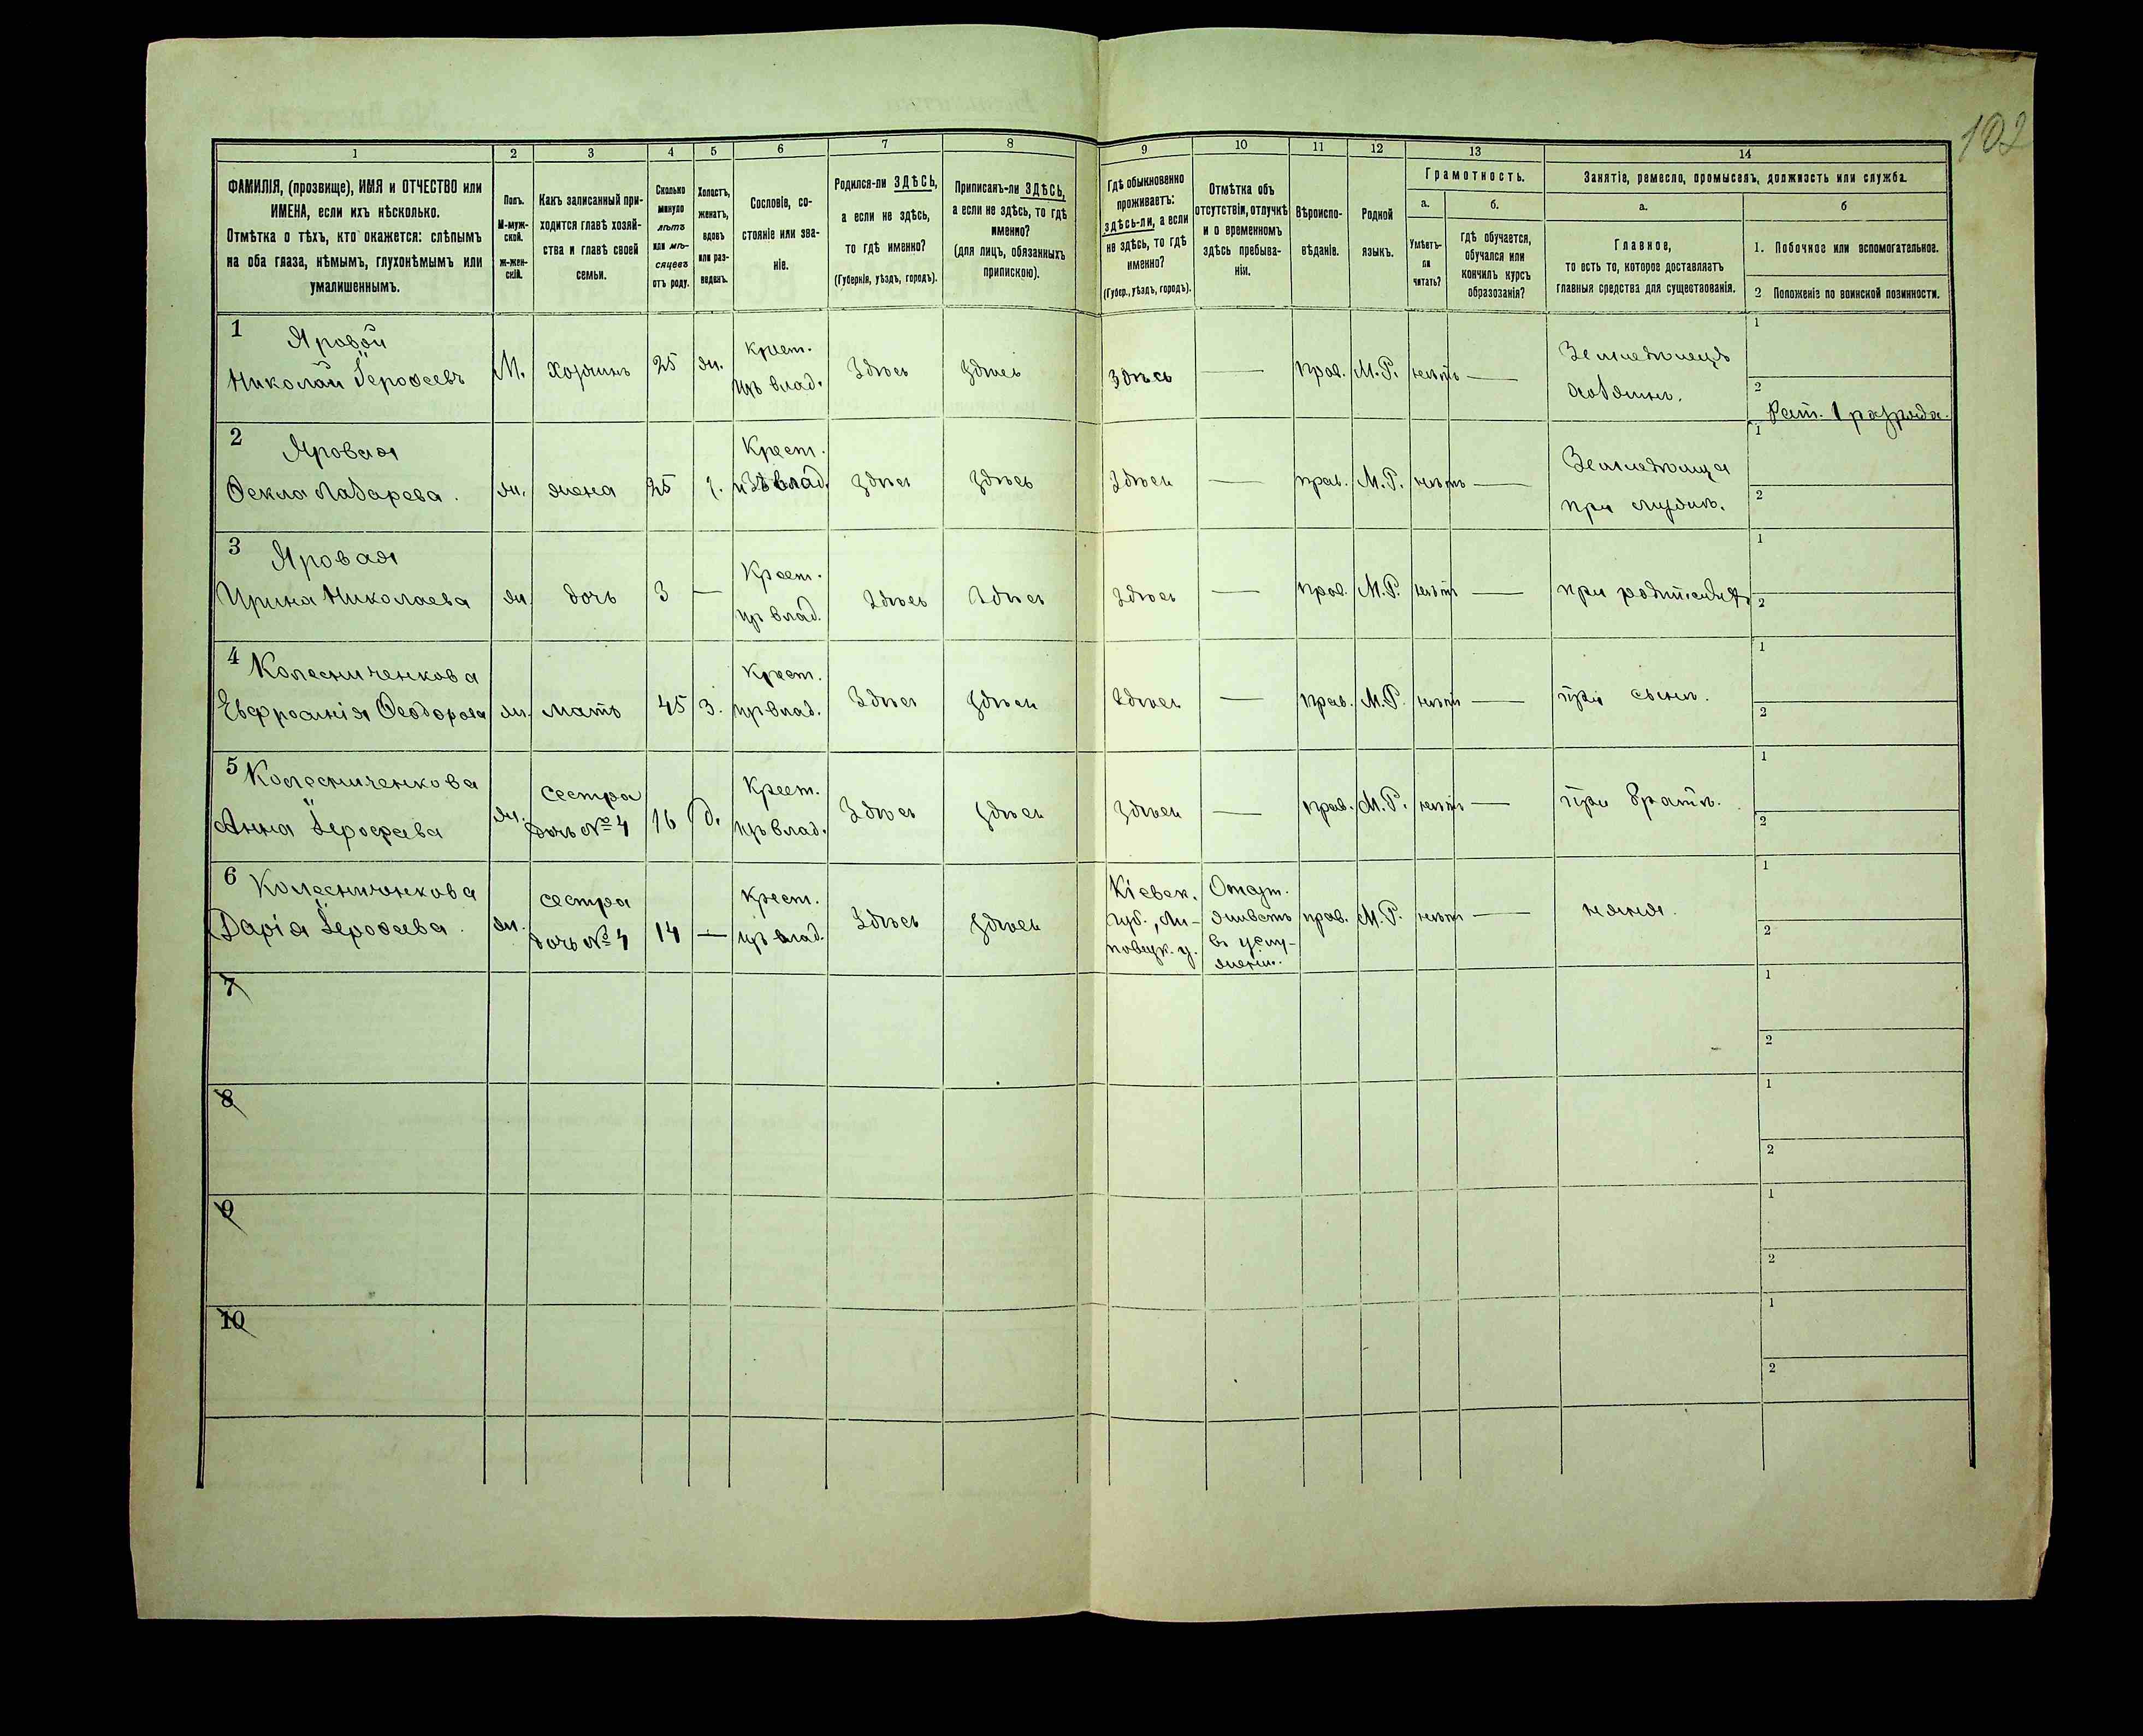 102
1
2
3
4
5
6
7
8
9
10
11
12
13
14
ФАМИЛІЯ, (прозвище), ИМЯ и ОТЧЕСТВО или
ИМЕНА, если ихъ нѣсколько.
Отмѣтка о тѣхъ, кто окажется: слѣпымъ
на оба глаза, нѣмымъ, глухонѣмымъ или
умалишеннымъ.
Полъ.
М-муж-
ской.
ж-жен-
скій.
Какъ записанный при-
ходится главѣ хозяй-
ства и главѣ своей
семьи.
Сколько
минуло
лѣтъ
или мѣ-
сяцевъ
отъ роду.
Холостъ,
женатъ,
вдовъ
или раз-
веденъ.
Сословіе, со-
стояніе или зва-
ніе.
Родился-ли ЗДѢСЬ,
а если не здѣсь,
то гдѣ именно?
(Губернія, уѣздъ, городъ).
Приписанъ-ли ЗДѢСЬ,
а если не здѣсь, то гдѣ
именно?
(для лицъ, обязанныхъ
припискою).
Гдѣ обыкновенно
проживаетъ:
здѣсь-ли, а если
не здѣсь, то гдѣ
именно?
(Губер., уѣздъ, городъ).
Отмѣтка объ
отсутствіи, отлучкѣ
и о временномъ
здѣсь пребыва-
ніи.
Вѣроиспо-
вѣданіе.
Родной
языкъ.
Грамотность.
а.
Умѣетъ-
ли
читать?
б.
Гдѣ обучается,
обучался или
кончилъ курсъ
образованія?
Занятіе, ремесло, промыселъ, должность или служба.
а.
Главное,
то есть то, которое доставляетъ
главныя средства для существованія.
б
1. Побочное или вспомогательное.
2 Положеніе по воинской повинности.
1 Яровой
Николай Іерофеевъ
М. хозяинъ 25 ж. крест.
изъ влад. Здѣсь здѣсь здѣсь — прав. М.Р. нѣтъ —
Земледѣлецъ
хозяинъ.
1
2 Рат. 1 разряда.
2 Яровая
Фекла Лазарева.
ж. жена 25 з. Крест.
изъ влад. здѣсь здѣсь здѣсь — прав. М.Р. нѣтъ —
Земледѣлица
при мужѣ.
1
2
3 Яровая
Ирина Николаева
ж. дочь 3 — Крест.
изъ влад. Здѣсь Здѣсь здѣсь — прав. М.Р. нѣтъ —
при родителяхъ
1
2
4 Колесниченкова
Евфросинія Феодорова
ж. мать 45 з. Крест.
изъ влад. Здѣсь здѣсь здѣсь — прав. М.Р. нѣтъ —
при сынѣ.
1
2
5 Колесниченкова
Анна Іерофеева
ж. сестра
дочь № 4 16 д. Крест.
изъ влад. Здѣсь здѣсь здѣсь — прав. М.Р. нѣтъ —
при братѣ.
1
2
6 Колесниченкова
Дарія Іерофеева.
ж. сестра
дочь № 4 14 — крест.
изъ влад. Здѣсь здѣсь
Кіевск.
губ., Ли-
повецк. у.
Отсут.
живетъ
въ услу-
женіи.
прав. М.Р. нѣтъ — няня.
1
2
7
1
2
8
1
2
9
1
2
10
1
2